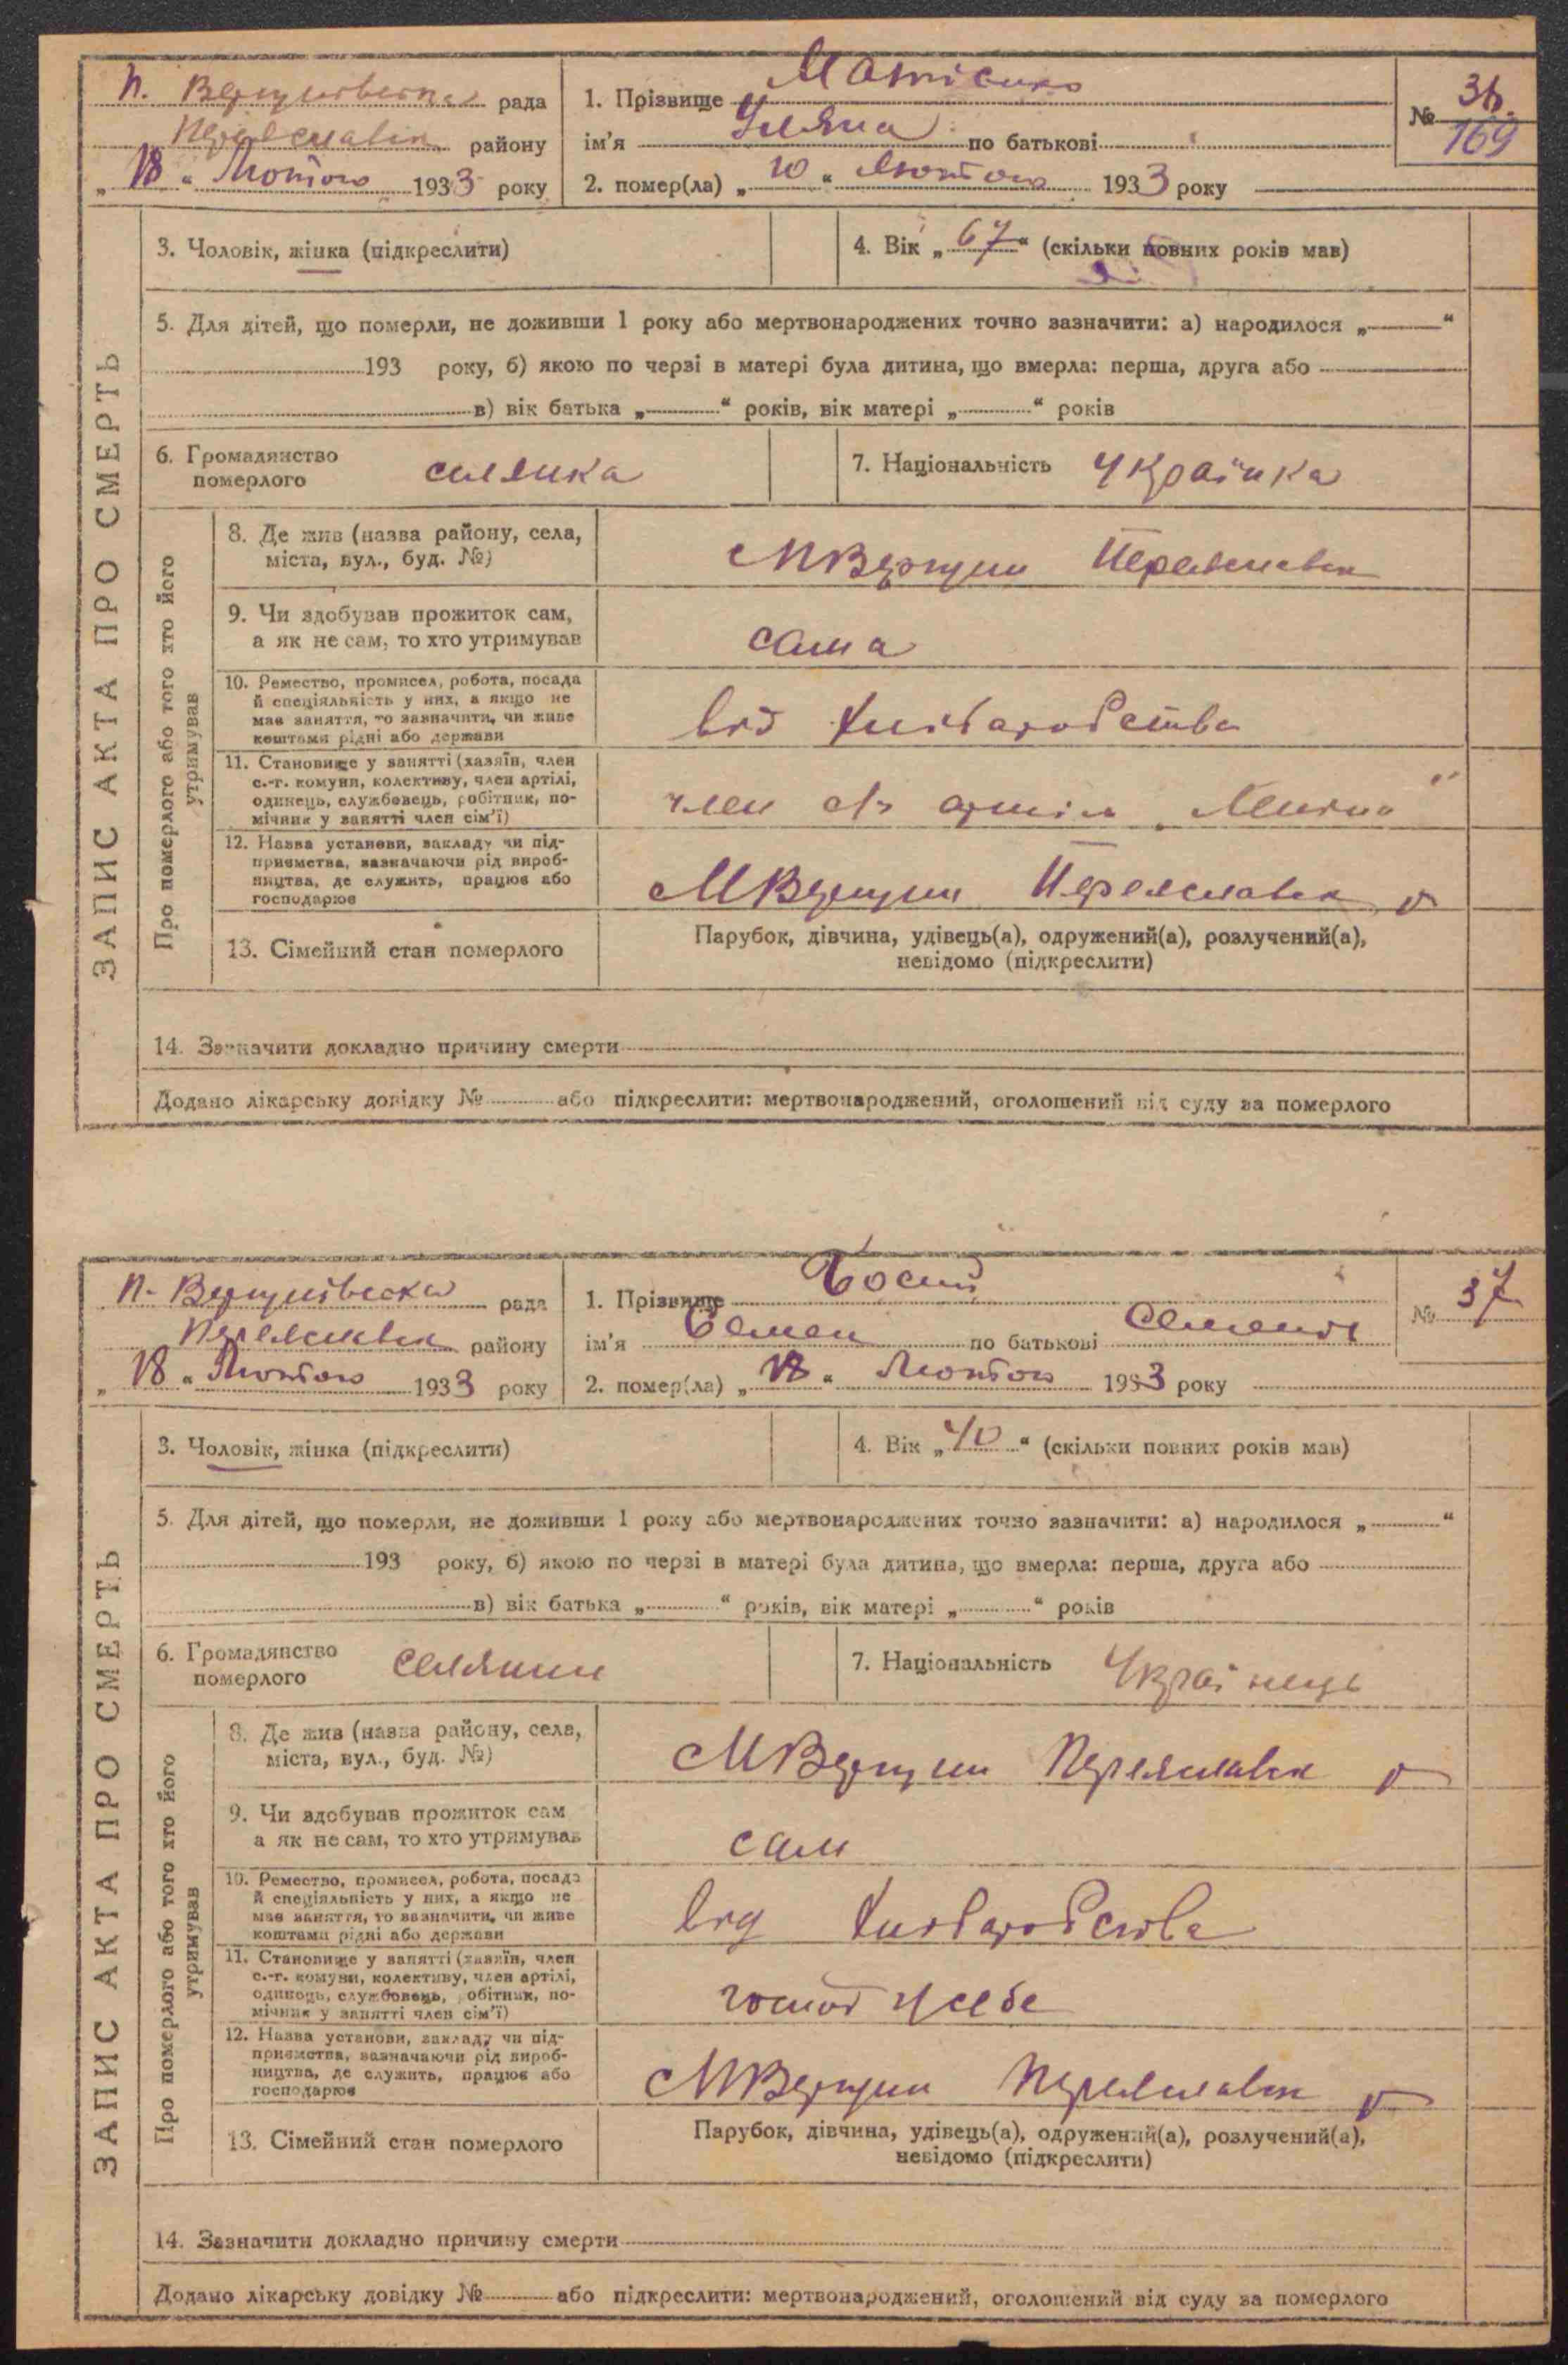 п. Вергунівська рада
Переяславськ району
„ 18 “ Лютого 1933 року
1. Прізвище Матієнко
ім'я Уляна по батькові
2. помер(ла) „ 10 “ Лютого 1933 року
№ 36.
169
ЗАПИС АКТА ПРО СМЕРТЬ
3. Чоловік, жінка (підкреслити)
4. Вік „ 67 “ (скільки повних років мав)
5. Для дітей, що померли, не доживши 1 року або мертвонароджених точно зазначити: а) народилося „ “
193 року, б) якою по черзі в матері була дитина, що вмерла: перша, друга або
в) вік батька „ “ років, вік матері „ “ років
6. Громадянство
померлого
селянка
7. Національність Українка
Про померлого або того хто його
утримував
8. Де жив (назва району, села,
міста, вул., буд. №)
Переяславськ
9. Чи здобував прожиток сам,
а як не сам, то хто утримував
сама
10. Ремество, промисел, робота, посада
й спеціяльність у них, а якщо не
має заняття, то зазначити, чи живе
коштами рідні або держави
від хліборобства
11. Становище у занятті (хазяїн, член
с.-г. комуни, колективу, член артілі,
одинець, службовець, робітник, по-
мічник у занятті член сім'ї)
член с/г артіли
12. Назва установи, закладу чи під-
приємства, зазначаючи рід вироб-
ництва, де служить, працює або
господарює
Переяславськ
13. Сімейний стан померлого
Парубок, дівчина, удівець(а), одружений(а), розлучений(а),
невідомо (підкреслити)
14. Зазначити докладно причину смерти
Додано лікарську довідку № або підкреслити: мертвонароджений, оголошений від суду за померлого
п. Вергунівська рада
Переяславськ району
„ 18 “ Лютого 1933 року
1. Прізвище Босий
ім'я Семен по батькові
2. помер(ла) „ 18 “ Лютого 1933 року
№ 37
ЗАПИС АКТА ПРО СМЕРТЬ
3. Чоловік, жінка (підкреслити)
4. Вік „ 40 “ (скільки повних років мав)
5. Для дітей, що померли, не доживши 1 року або мертвонароджених точно зазначити: а) народилося „ “
193 року, б) якою по черзі в матері була дитина, що вмерла: перша, друга або
в) вік батька „ “ років, вік матері „ “ років
6. Громадянство
померлого
селянин
7. Національність Українець
Про померлого або того хто його
утримував
8. Де жив (назва району, села,
міста, вул., буд. №)
Переяславськ
9. Чи здобував прожиток сам
а як не сам, то хто утримував
сам
10. Ремество, промисел, робота, посада
й спеціяльність у них, а якщо не
має заняття, то зазначити, чи живе
коштами рідні або держави
від хліборобства
11. Становище у занятті (хазяїн, член
с.-г. комуни, колективу, член артілі,
одинець, службовець, робітник, по-
мічник у занятті член сім'ї)
у себе
12. Назва установи, закладу чи під-
приємства, зазначаючи рід вироб-
ництва, де служить, працює або
господарює
Переяславськ
13. Сімейний стан померлого
Парубок, дівчина, удівець(а), одружений(а), розлучений(а),
невідомо (підкреслити)
14. Зазначити докладно причину смерти
Додано лікарську довідку № або підкреслити: мертвонароджений, оголошений від суду за померлого